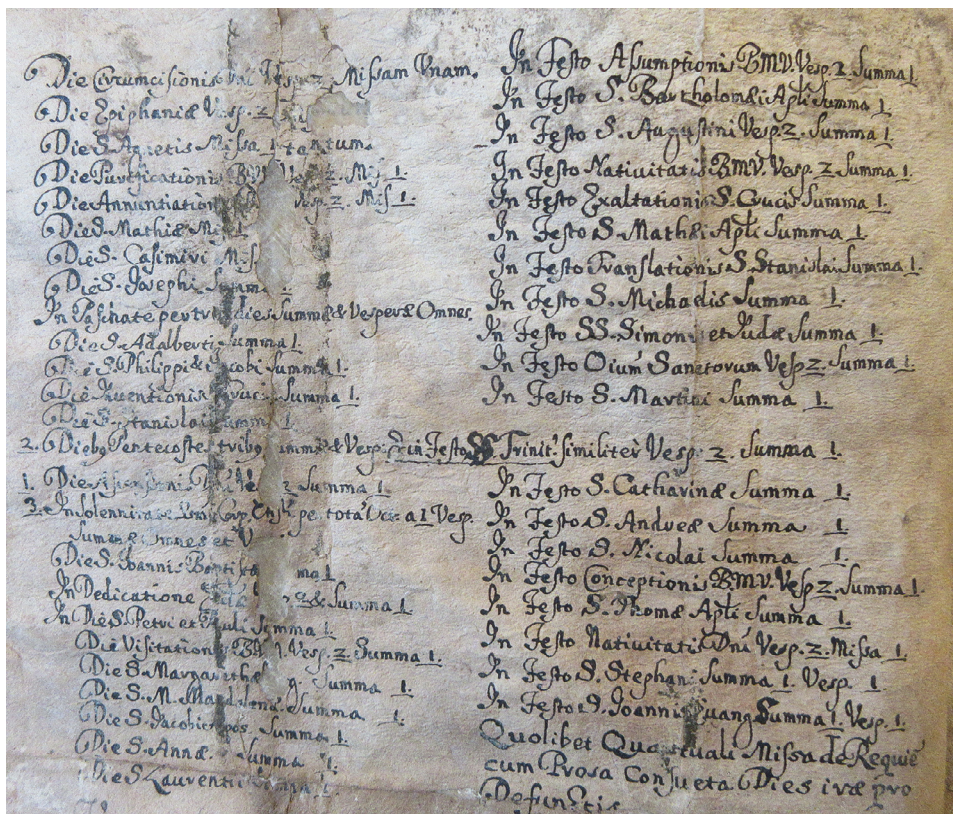 Die Circumcisionis Vesp. 2 Missam Vnam.
Die Epiphaniæ Vesp. 2
Die S. Agnetis Missa 1 tantum
Die Purificationis Vesp. 2. Mis. 1.
Die Annuntiation Vesp. 2. Mis 1.
Die S. Mathiæ Mis. 1
Die S. Casimiri Mis
Die S. Josephi Summa 1.
In Paschate per dies Summæ & Vesperæ Omnes.
Die S. Adalberti Summa 1.
Die S. Philippi & Jacobi Summa 1.
Die Inventionis Crucis Summa 1.
Die S. Stanislai Summa 1.
2. Diebs Pentecostes tribs Summæ & Vesp: in Festo SS Trinit. similiter Vesp. 2. Summa 1.
1. 2 Summa 1.
3. In Solennitate per totā a 1 Vesp.
Summæ omnes et V
Die S. Joannis Bapti ma 1
In Dedicatione & Summa 1
In Die S. Petri et Pauli Summa 1.
Die Visitation BM Vesp. 2. Summa 1.
Die S. Margarethæ Summa 1.
Die S. M. Magdalenæ Summa 1.
Die S. Jacobi Apos. Summa 1.
Die S. Annæ Summa 1.
Die S Laurentii Summa 1.
In Festo Assumptionis BMV. Vesp. 2. Summa 1.
In Festo S. Bartholomæi Apli Summa 1
In Festo S. Augustini Vesp. 2. Summa 1.
In Festo Nativitatis BMV. Vesp 2. Summa 1.
In Festo Exaltationis S. Crucis Summa 1.
In Festo S. Mathæi Apli Summa 1
In Festo Translationis S Stanislai Summa 1.
In Festo S. Michaelis Summa 1.
In Festo SS. Simonis et Judæ Summa 1.
In Festo Oium Sanctorum Vesp 2. Summa 1.
In Festo S. Martini Summa 1.
In Festo S. Catharinæ Summa 1.
In Festo S. Andreæ Summa 1
In Festo S. Nicolai Summa 1.
In Festo Conceptionis BMV. Vesp 2. Summa 1.
In Festo S. Thomæ Apli Summa 1.
In Festo Nativitatis Dni Vesp. 2. Missa 1.
In Festo S. Stephani Summa 1. Vesp 1.
In Festo S. Joannis Euang Summa 1. Vesp. 1.
Quolibet Quartuali Missa de Requiē
cum Prosa Consueta Dies iræ pro
Defunctis